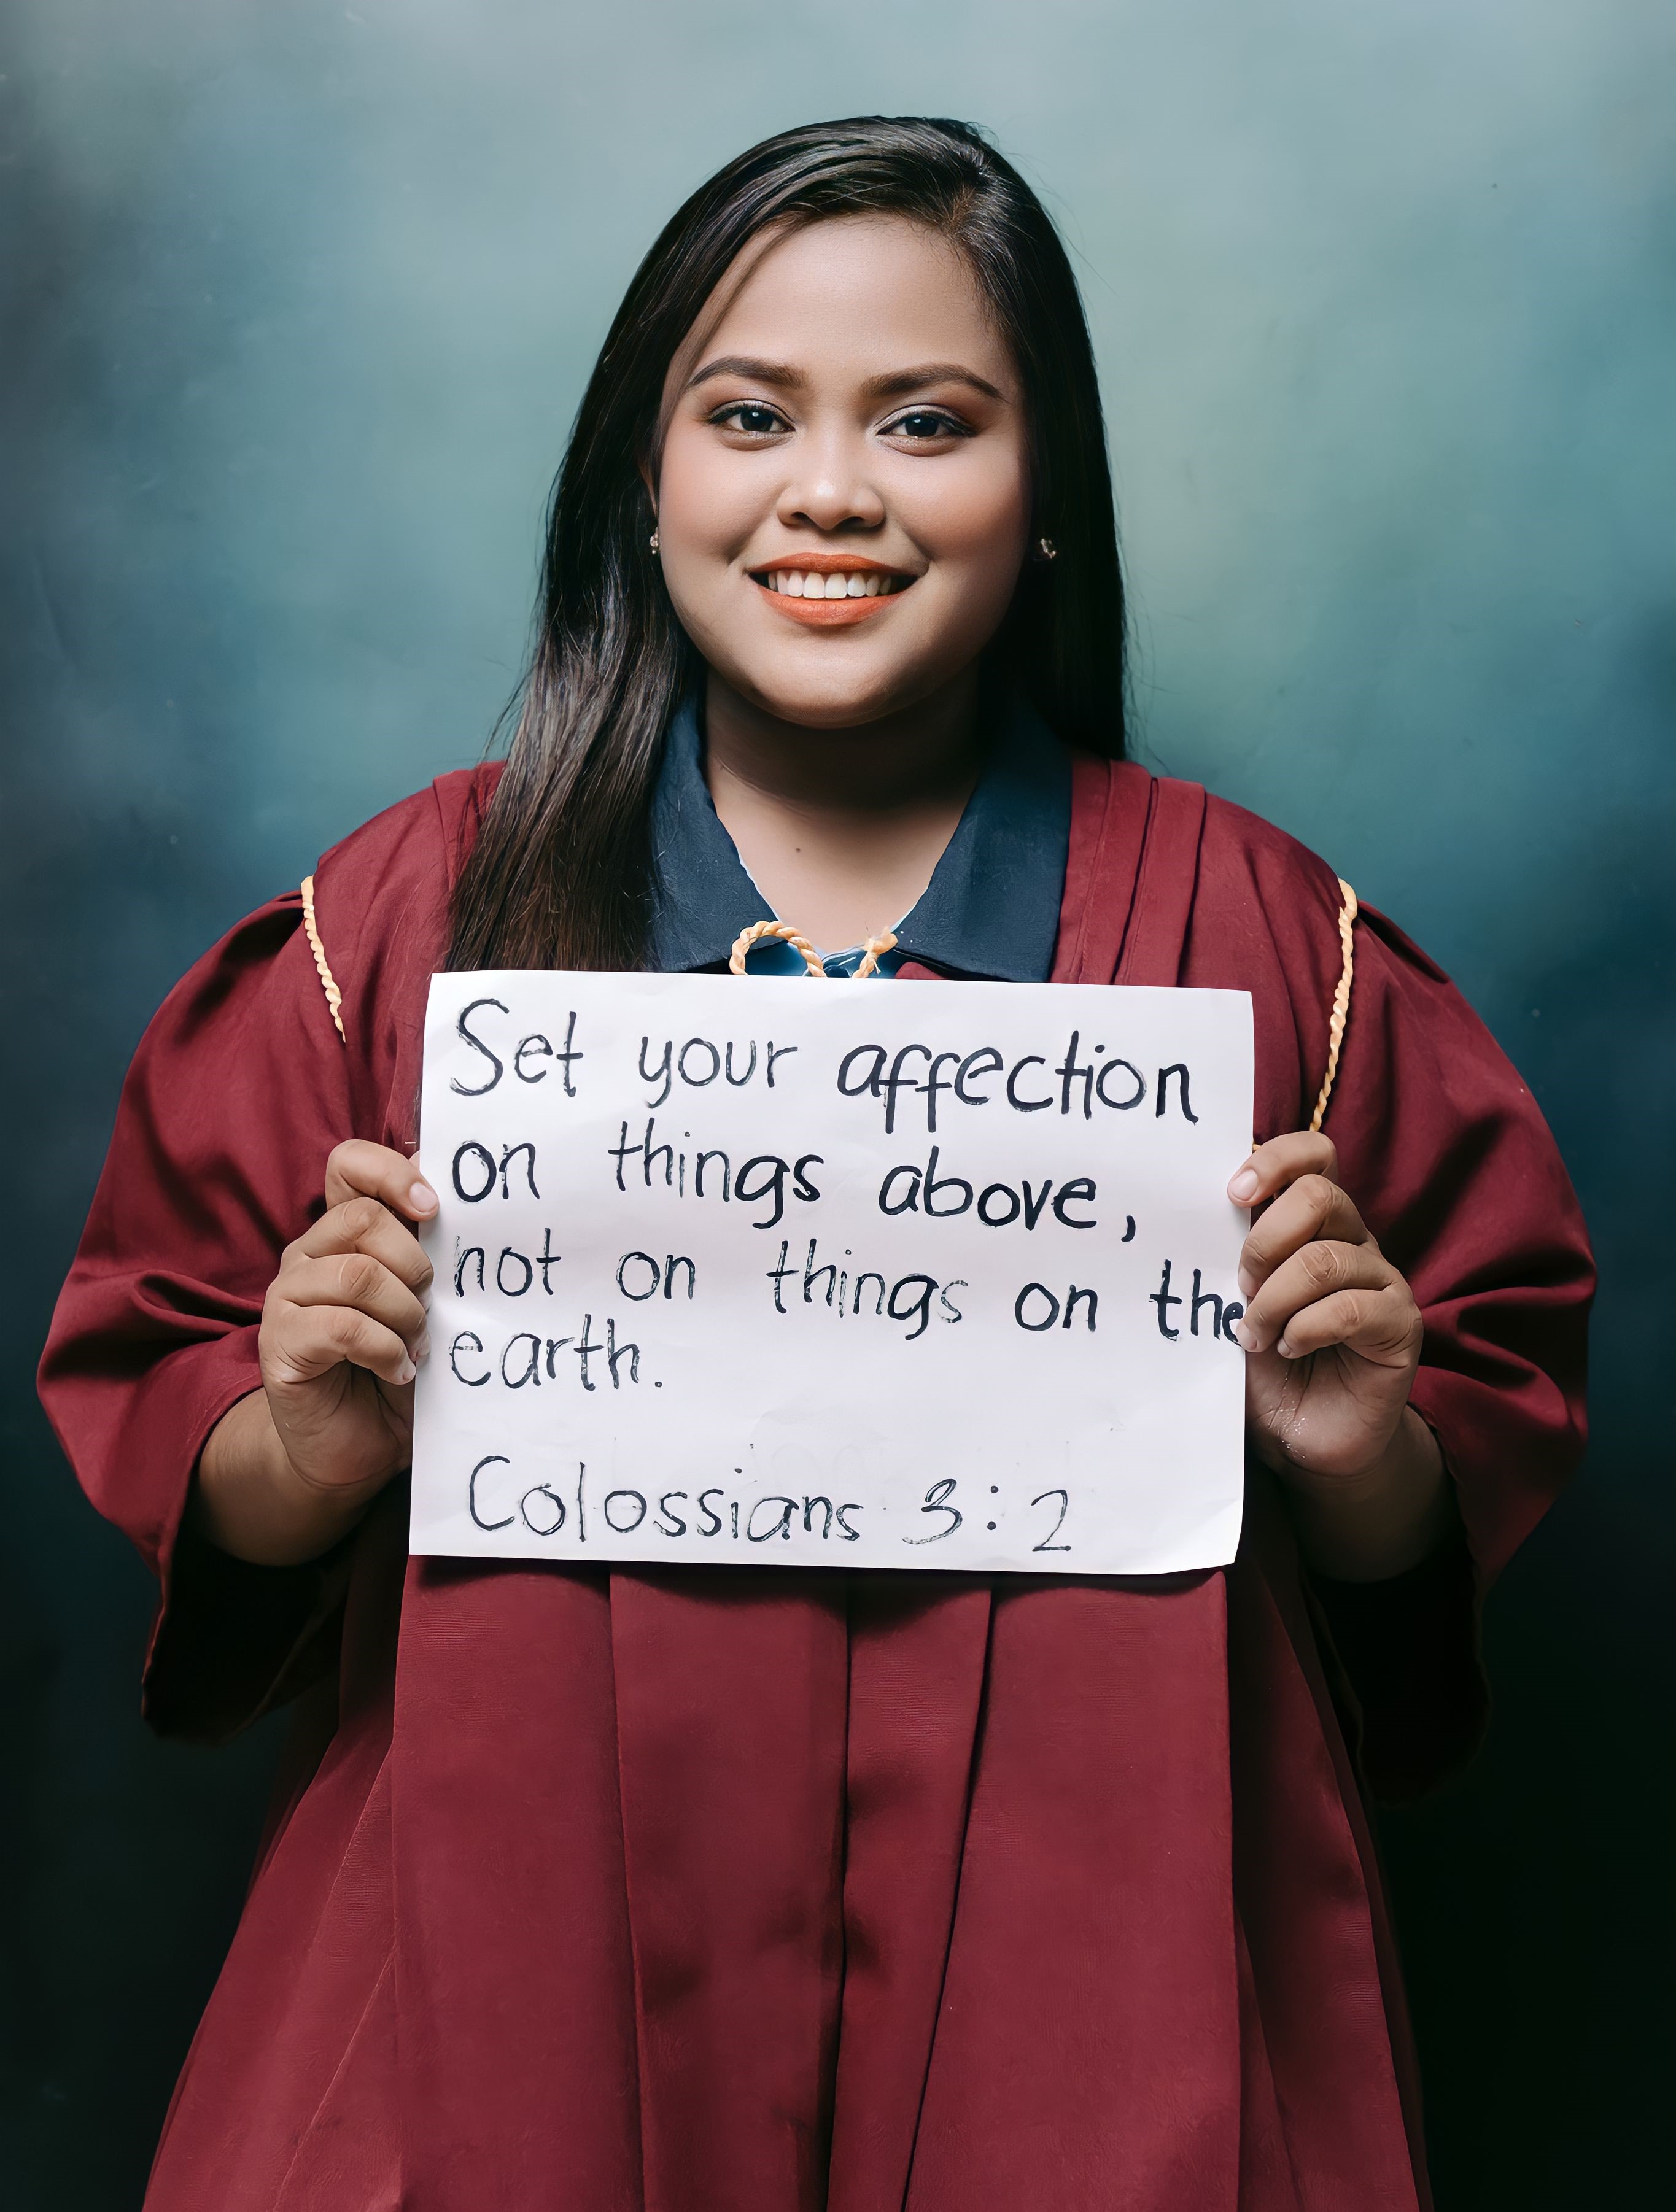 Set your affection
on things above,
not on things on the
earth.
Colossians 3:2